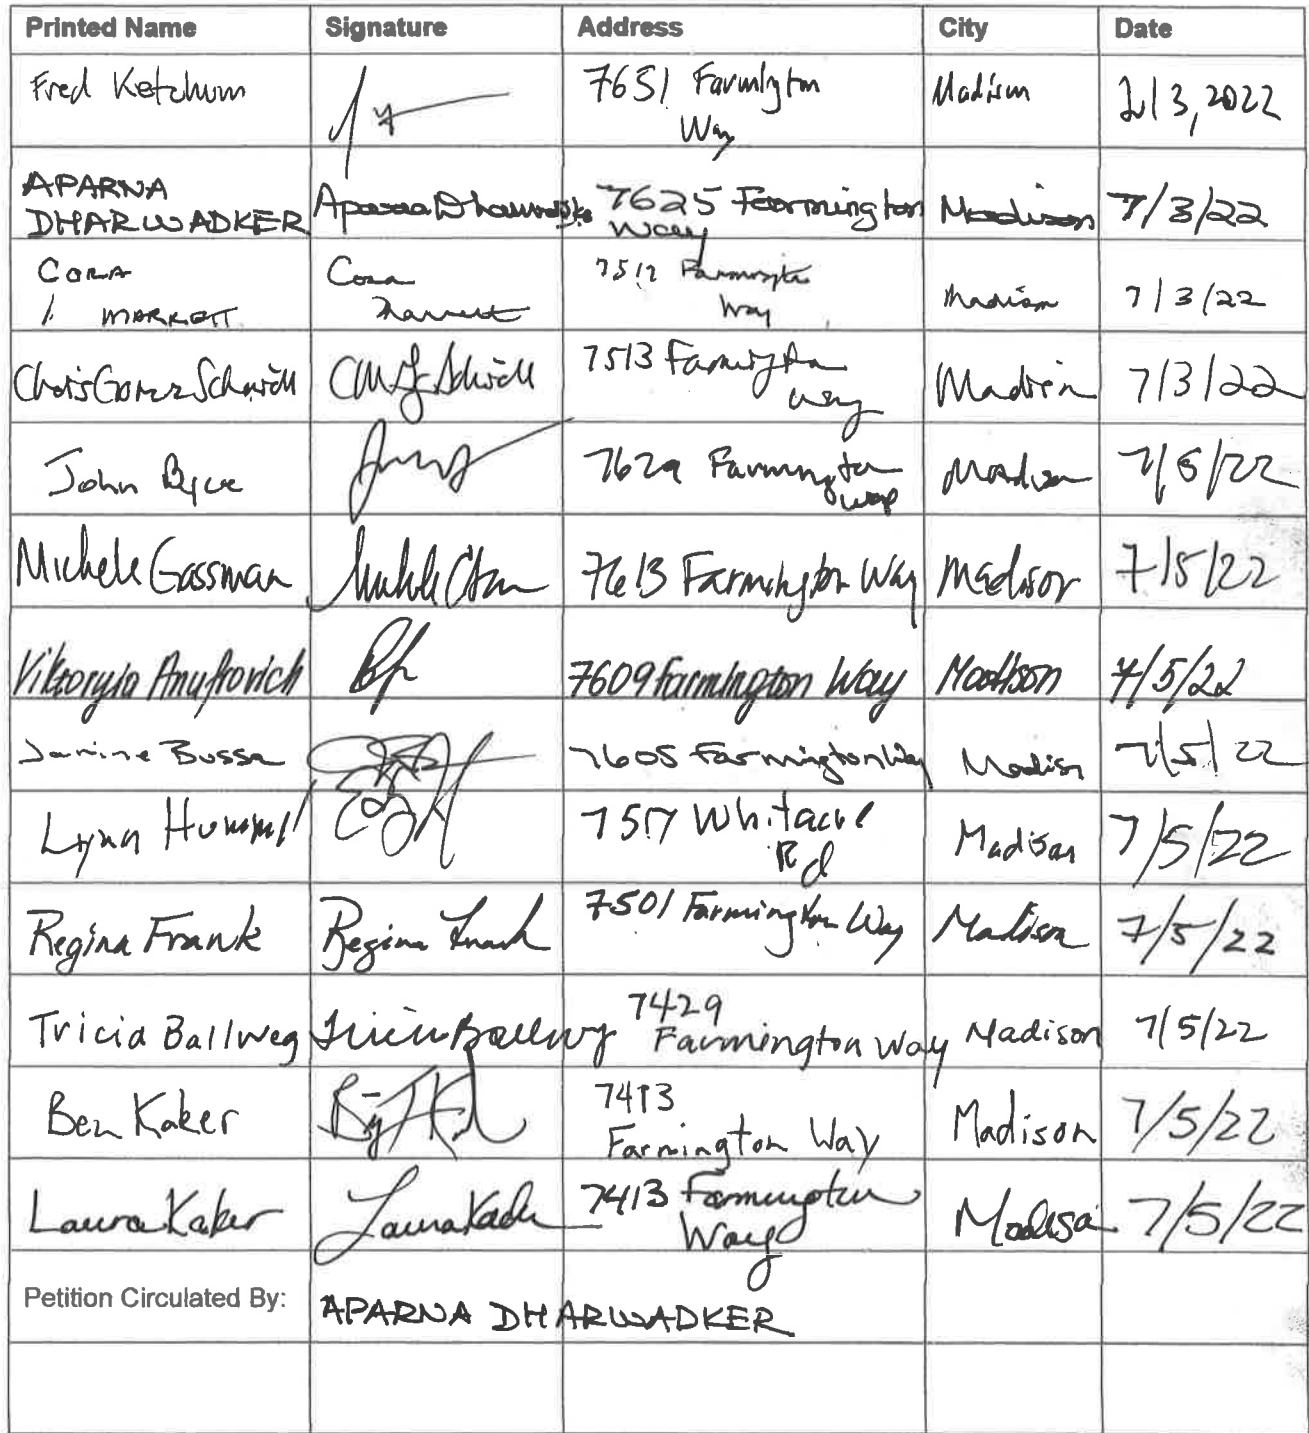 Printed Name Signature Address City Date
Fred Ketchum 7651 Farmington Madison 3, 2022
Way
APARNA
DHARWADKER Aparna Dharwadker 7625 Farmington Madison 7/3/22
Way
CORA Cora Farmington
MARRETT Marrett Way Madison 7/3/22
7513 Farmington
Way Madison 7/3/22
John 7629 Farmington Madison 7/5/22
Way
Michele Gassman 7613 Farmington Way Madison 7/5/22
Viktoryia Anufrovich 7609 Farmington Way Madison 7/5/22
Janine Bussa 7605 Farmington Way Madison 7/5/22
Lynn Hummel 7517 Whitacre Madison 7/5/22
Rd
Regina Frank Regina Frank 7501 Farmington Way Madison 7/5/22
Tricia Ballweg Tricia Ballweg 7429
Farmington Way Madison 7/5/22
Ben Kaker 7413
Farmington Way Madison 7/5/22
Laura Kaker Laura Kaker 7413 Farmington
Way Madison 7/5/22
Petition Circulated By: APARNA DHARWADKER